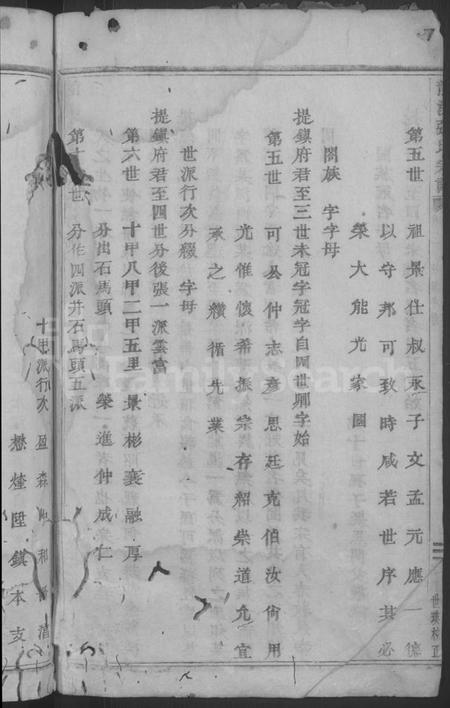 第五世 祖景仕叔永子文孟元應一德
以守邦可致時咸若世序其必
榮大能光家國
閤族 字字母
提鎮府君至三世未冠字冠字自四世嗣字始
第五世 可公仲志彥思廷克伯汝尚用
光惟懷希振宗存紹崇道允宜
承之纘循先業
世派行次分綴 字母
提鎮府君至四世分後張一派雲富
第六世 十甲八甲二甲五里 景彬襄融厚
分出石馬頭 榮進仲成仁
世 分作四派井石馬頭五派
十甲派行次 盈森
懋 陞鎮本支
世
7
FamilySearch